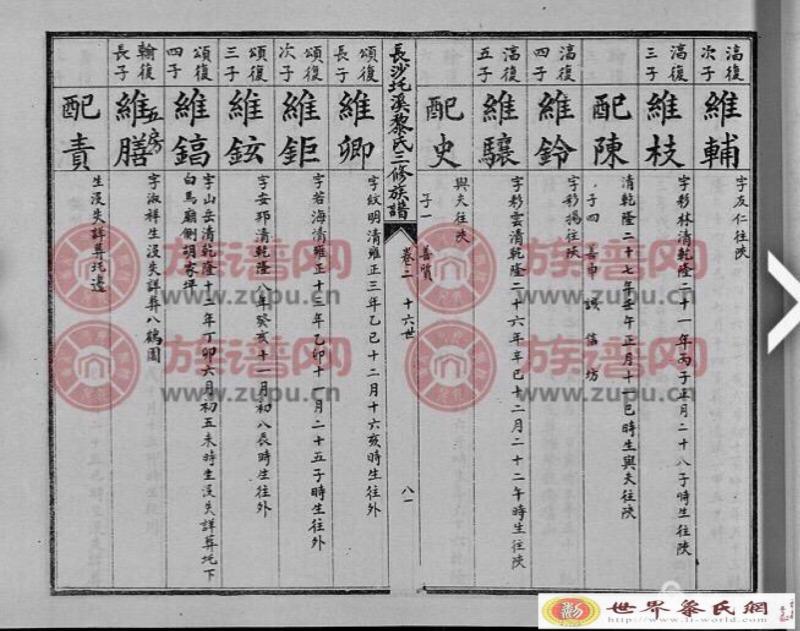 滈復次子
維輔
字友仁往陝
滈復三子
維枝
字彩林清乾隆二十一年丙子正月二十八子時生往陝
配陳
清乾隆二十七年壬午正月十一巳時生與夫往陝
子四 善申 謨 信 坊
滈復四子
維鈴
字彩揚往陝
滈復五子
維驤
字彩雲清乾隆二十六年辛巳十二月二十二午時生往陝
配史
與夫往陝
子一 善賢
長沙圫溪黎氏三修族譜
卷二 十六世
八一
頌復長子
維卿
字紋明清雍正三年乙巳十二月十六亥時生往外
頌復次子
維鉅
字若海清雍正十三年乙卯十一月二十五子時生往外
頌復三子
維鉉
字安邦清乾隆八年癸亥十一月初八辰時生往外
頌復四子
維鎬
字山岳清乾隆十二年丁卯六月初五未時生沒失詳葬圫下
白馬廟側胡家坪
翰復長子
五房
維膳
字淑祥生沒失詳葬八鶴園
配責
生沒失詳葬圫邊
族谱网
www.zupu.cn
族谱网
www.zupu.cn
族谱网
www.zupu.cn
族谱网
www.zupu.cn
世界黎氏網
http://www.li-world.com